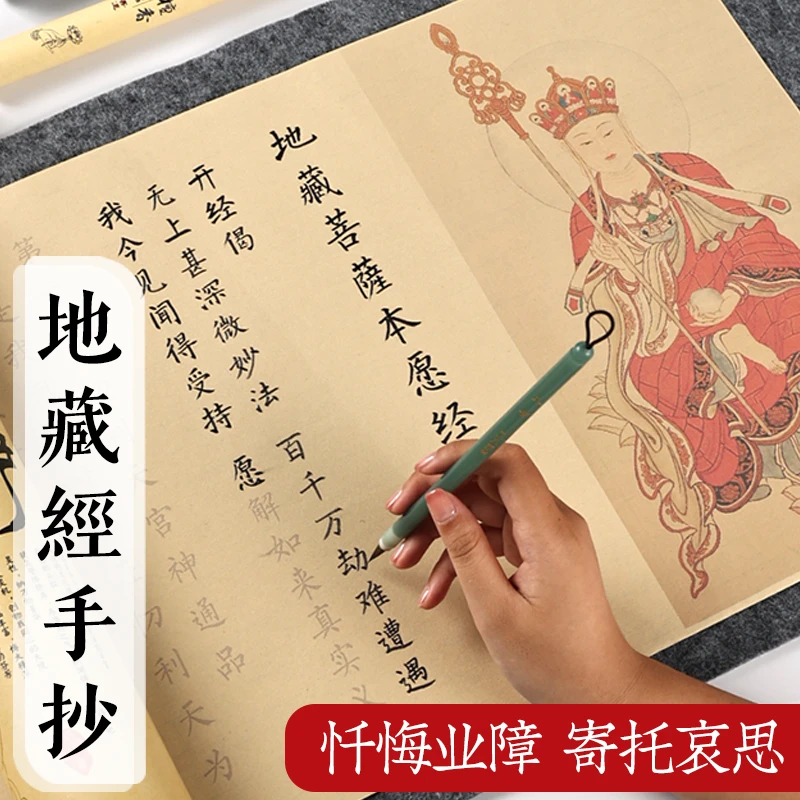 地藏菩薩本愿经
开经偈
无上甚深微妙法 百千万劫难遭遇
我今见闻得受持 愿解如来真实义
天宫神通品
忉利天为
第
地藏經手抄
忏悔业障 寄托哀思